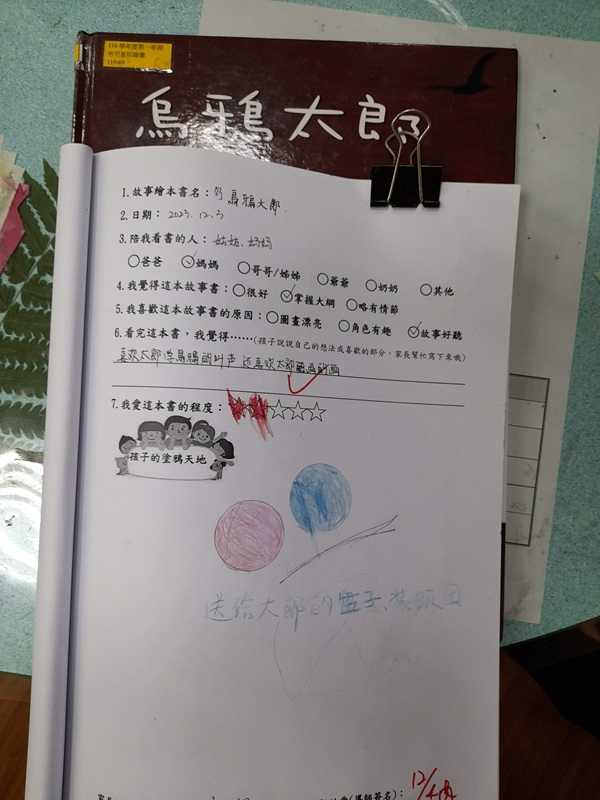 110學年度第一學期
布可星球贈書
110-69
烏鴉太郎
1.故事繪本書名：烏鴉太郎
2.日期：2023.12.3
3.陪我看書的人：姑姑、媽媽
○爸爸 ○媽媽 ○哥哥/姊姊 ○爺爺 ○奶奶 ○其他
4.我覺得這本故事書：○很好 ○掌握大綱 ○略有情節
5.我喜歡這本故事書的原因：○圖畫漂亮 ○角色有趣 ○故事好聽
6.看完這本書，我覺得……(孩子說說自己的想法或喜歡的部分，家長幫忙寫下來哦)
喜欢太郎学烏鴉的叫声 还喜欢太郎画的画
7.我愛這本書的程度：☆☆☆☆☆
孩子的塗鴉天地
送给太郎的盘子、装饭团
師簽名)：
12/4